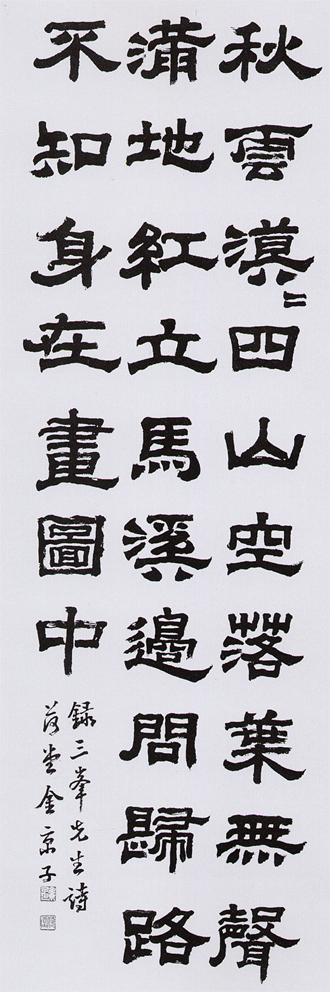 秋雲漠〻四山空落葉無聲
滿地紅立馬溪邊問歸路
不知身在畫圖中
録三峯先生詩
堂金京子